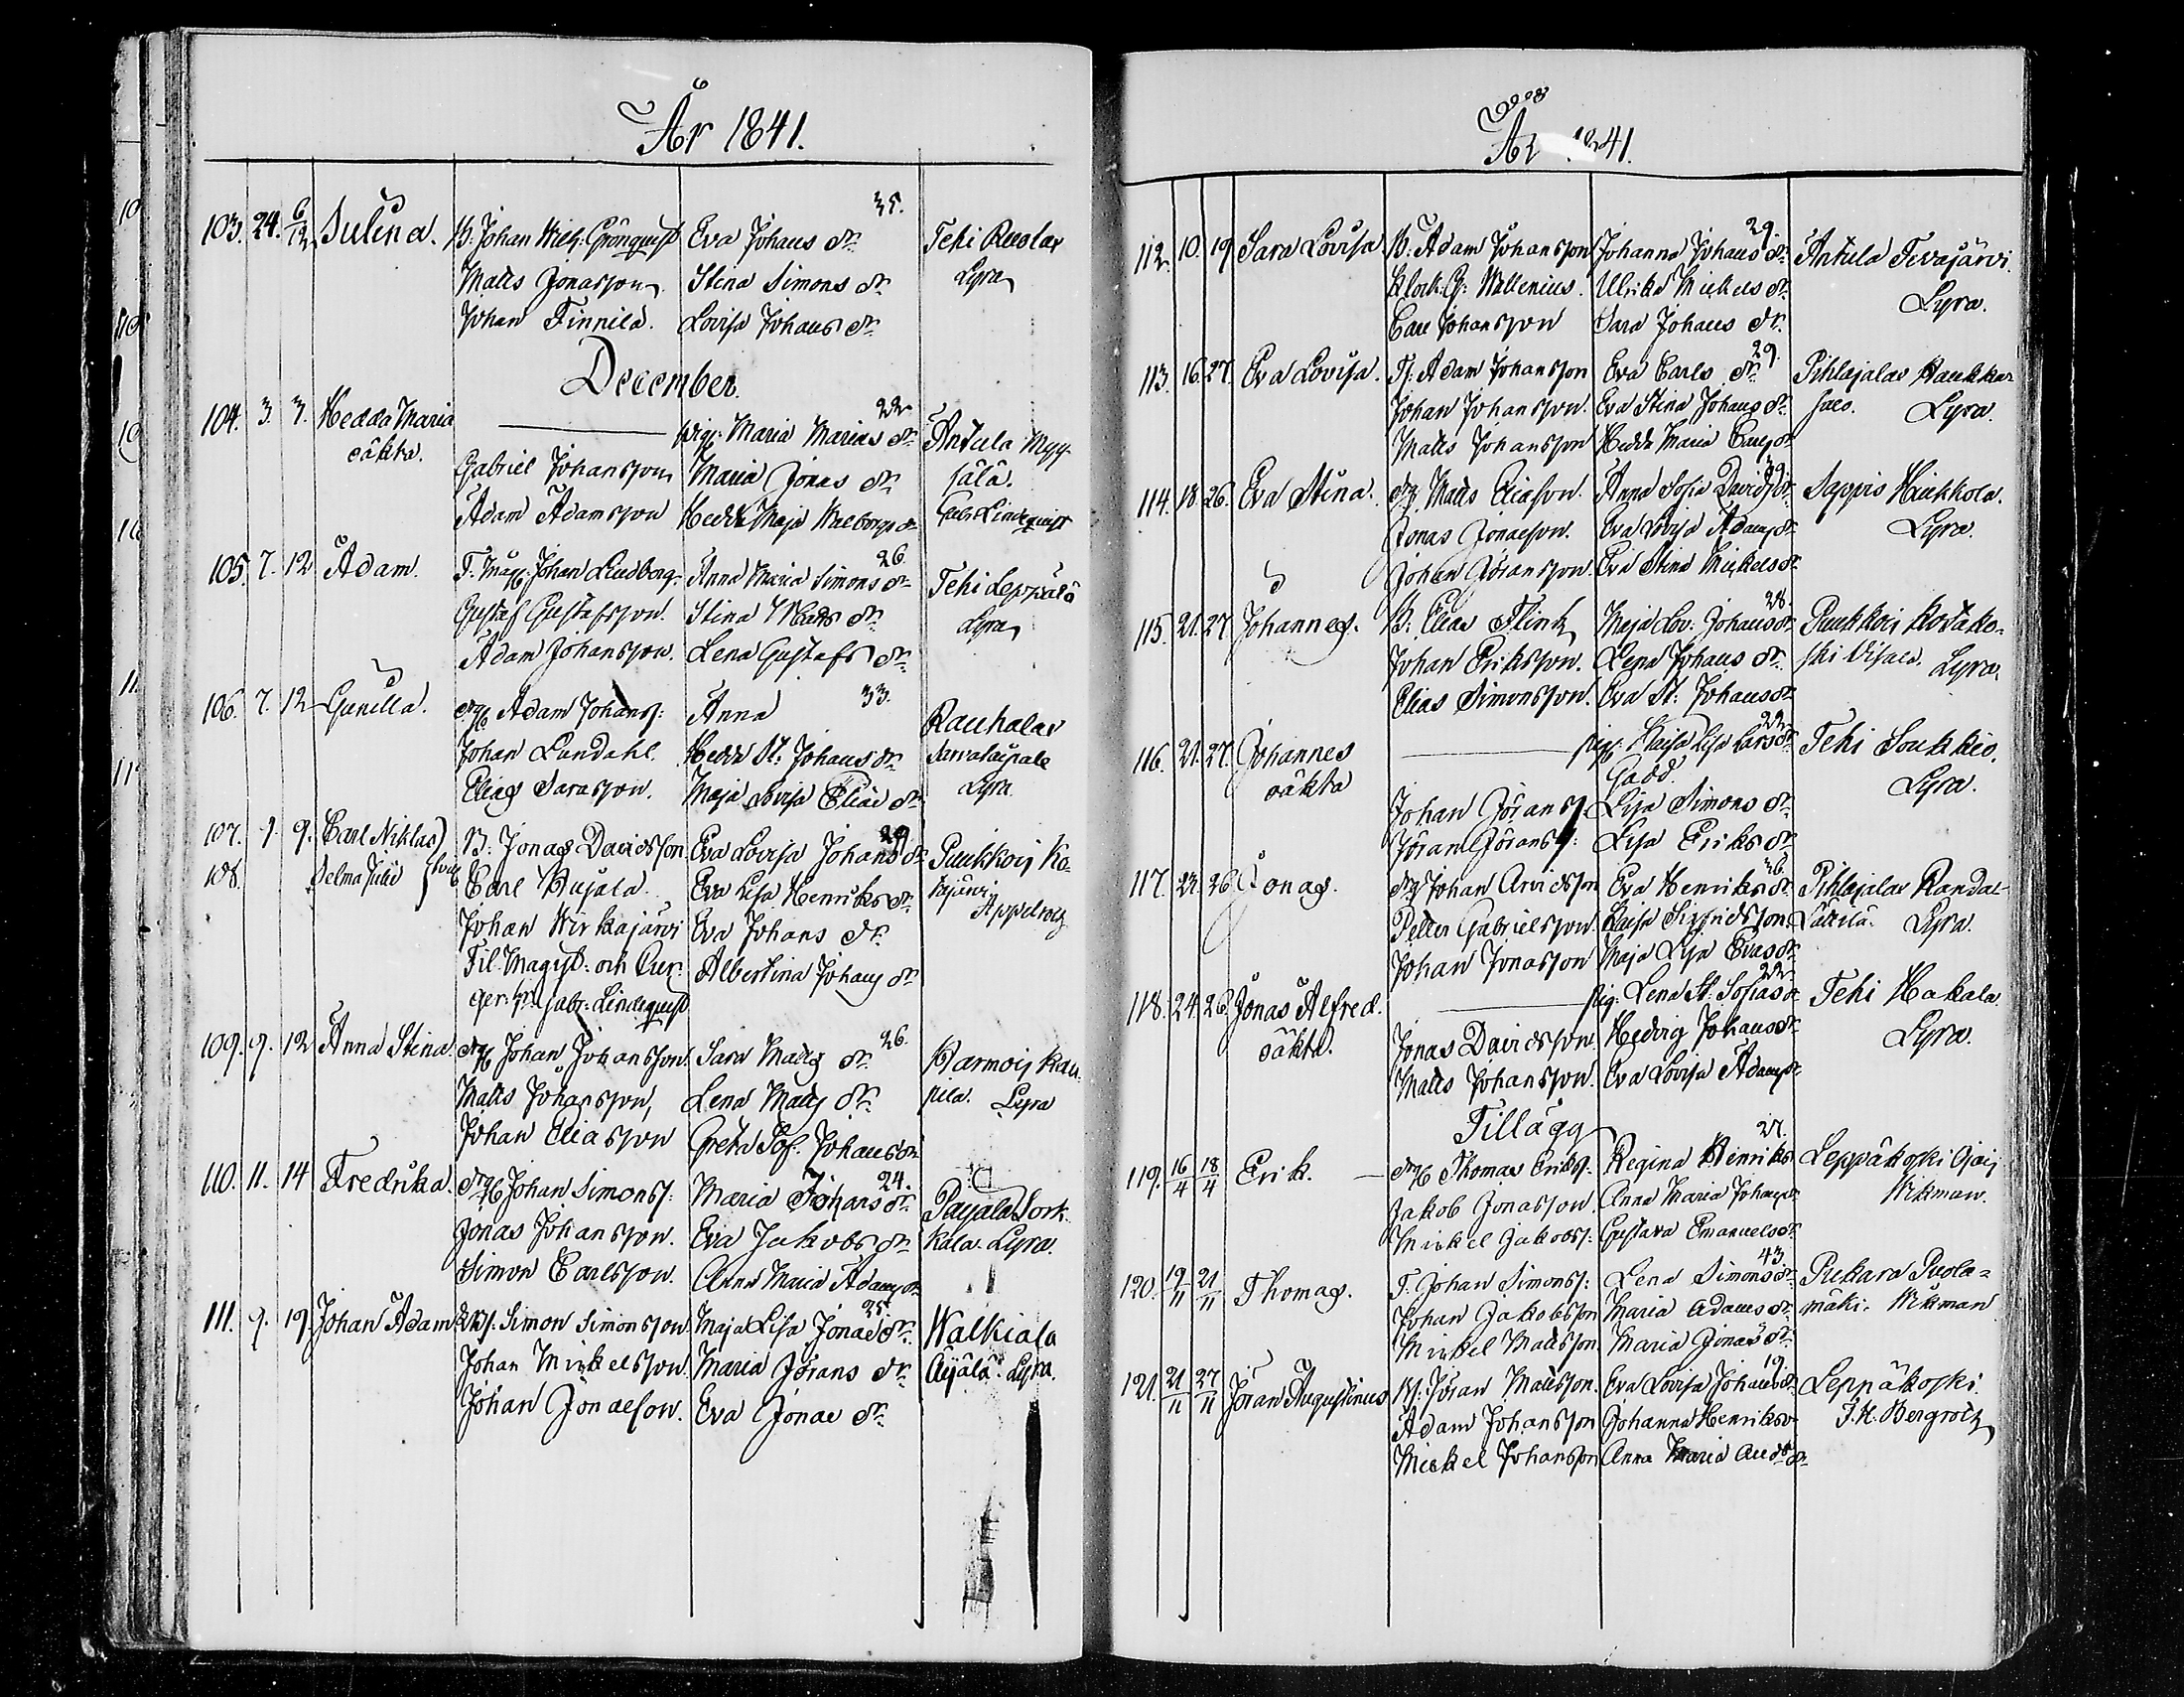 År 1841.
103. 24. 6/12 Julina. B: Johan Wilh: Grönquist Eva Johans dr. 35. Tehi Ruolax
Matts Jonasson Stina Simons dr. Lyra
Johan Finnilä. Lovisa Johans dr.
December.
104. 3. 3. Hedda Maria pig: Maria Marias dr 22 Antula Myg-
oäkta. Gabriel Johansson Maria Jonas dr sälä.
Adam Adamsson Hedda Maja Walborgs dr Gabr Lindequist
105. 7. 12 Adam. T. Mag: Johan Lindborg. Anna Maria Simons dr 26. Tehi Leppälä
Gustaf Gustafsson. Stina Matts dr. Lyra
Adam Johansson. Lena Gustafs dr.
106. 7. 12 Gunilla. drg Adam Johanss: Anna 33. Rauhalax
Johan Lundahl. Hedda St: Johans dr.
Elias Sarasson. Maja Lovisa Elias dr. Lyra
107. 1 9. Carl Niklas B: Jonas Davidsson Eva Lovisa Johans dr 29. Puukkois Ko-
108. Selma Julia Carl Kujala. Eva Lisa Henriks dr. kajärvi
Johan Wirkajärvi Eva Johans dr. Appelroth
Fil. Magist: och Cur. Albertina Johans dr
ger: Gabr: Lindequist
109. 9. 12 Anna Stina drg Johan Johansson. Sara Matts dr. 26. Harmois Kau-
Matts Johansson, Lena Matts dr. pila. Lyra
Johan Eliasson Greta Sof. Johans dr.
110. 11. 14 Fredrika. drg Johan Simonss: Maria Johans dr. 24. Pajala Sork-
Jonas Johansson. Eva Jakobs dr kala. Lyra.
Simon Carlsson. Anna Maria Adams dr.
111. 9. 19 Johan Adam Simon Simonsson. Maja Lisa Jonas dr. 25. Walkiala
Johan Mickelsson. Maria Jörans dr. Äijälä. Lyra.
Johan Jonasson. Eva Jonas dr.
År 1841.
112. 10. 19 Sara Lovisa B: Adam Johansson Johanna Johans dr. 29. Antula Tevajärvi.
Klock: G: Wallenius. Ulrika Mickels dr. Lyra.
Carl Johansson Sara Johans dr.
113. 16. 27. Eva Lovisa. T: Adam Johansson Eva Carls dr. 29. Pihlajalax Haukka-
Johan Johansson. Eva Stina Johans dr. salo. Lyra.
Matts Johansson Hedda Maria Carls dr
114. 18. 26. Eva Stina. drg Matts Eliasson. Anna Sofia Davids dr 39. Sappis Hiukkola.
Jonas Jonasson. Eva Lovisa Adams dr Lyra.
Johan Göransson. Eva Stina Mickels dr
115. 21. 27 Johannes. B: Elias Flink Maja Lov: Johans dr 28. Puukkois Kortako-
Johan Eriksson. Lena Johans dr. ski Lyra.
Elias Simonsson. Eva St: Johans dr
116. 21. 27. Johannes pig: Kaisa Lisa Lars dr 22. Tehi Soukkio.
oäkta Gadd. Lyra.
Johan Göranss: Lisa Simons dr
Jöran Göranss: Lisa Eriks dr
117. 23. 26 Jonas. drg Johan Arvidsson Eva Henriks dr 36. Pihlajalax Randa-
Petter Gabrielsson. Kaisa Sigfridsson. Lattila. Lyra.
Johan Jonasson Maja Lisa Evas dr
118. 24. 26 Jonas Alfred. pig: Lena St: Sofias dr 22. Tehi Hakala.
oäkta. Jonas Davidsson. Hedvig Johans dr Lyra.
Matts Johansson. Eva Lovisa Adams dr
Tillägg
119. 16/4 18/4 Erik. drg Thomas Erikss: Regina Henriks 27. Leppäkoski Ojais
Jakob Jonasson. Anna Maria Johans dr Wikman.
Mickel Jakobss: Gustava Emanuels dr
120. 19/11 21/11 Thomas. T. Johan Simonss: Lena Simons dr 43. Pukara Puola-
Johan Jakobsson Maria Adams dr mäki. Wikman
Mickel Mattsson Maria Jonas dr
121. 21/11 27/11 Jöran Augustinus B: Jöran Mattsson. Eva Lovisa Johans dr 19. Leppäkoski.
Adam Johansson Johanna Henriks dr J. H. Bergroth
Mickel Johansson Anna Maria And: dr